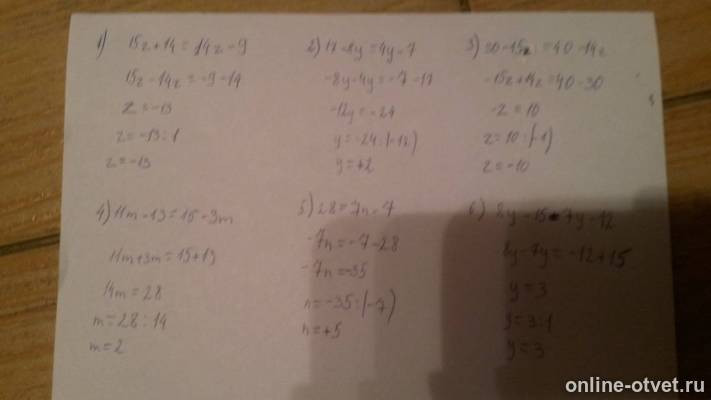 1) 15z+14=14z-9
15z-14z=-9-14
z=-13
z=-13:1
z=-13
2) 17-8y=4y-7
-8y-4y=-7-17
-12y=-24
y=-24:(-12)
y=+2
3) 30-15z=40-14z
-15z+14z=40-30
-z=10
z=10:(-1)
z=-10
4) 11m-13=15-3m
11m+3m=15+13
14m=28
m=28:14
m=2
5) 28=7n-7
-7n=-7-28
-7n=-35
n=-35:(-7)
n=+5
6) 8y-15=7y-12
8y-7y=-12+15
y=3
y=3:1
y=3
online-otvet.ru